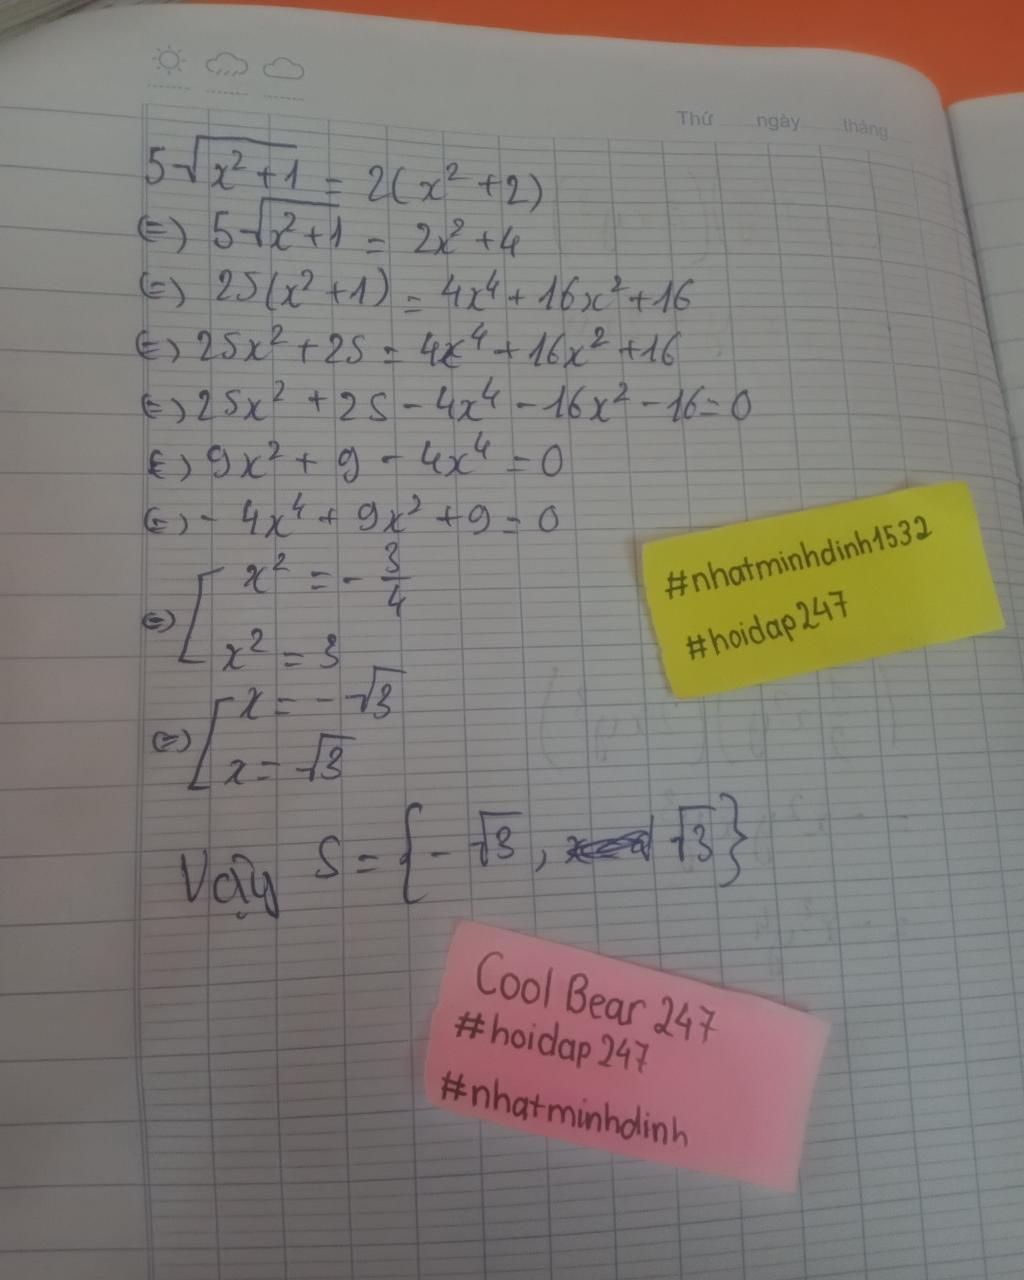 Thứ ngày tháng
5√(x² + 1) = 2(x² + 2)
(=) 5√(x² + 1) = 2x² + 4
(=) 25(x² + 1) = 4x⁴ + 16x² + 16
(=) 25x² + 25 = 4x⁴ + 16x² + 16
(=) 25x² + 25 - 4x⁴ - 16x² - 16 = 0
(=) 9x² + 9 - 4x⁴ = 0
(=) - 4x⁴ + 9x² + 9 = 0
(=) [ x² = - 3/4
x² = 3
(=) [ x = - √3
x = √3
Vậy S = { - √3 , √3 }
#nhatminhdinh1532
#hoidap247
Cool Bear 247
#hoidap247
#nhatminhdinh